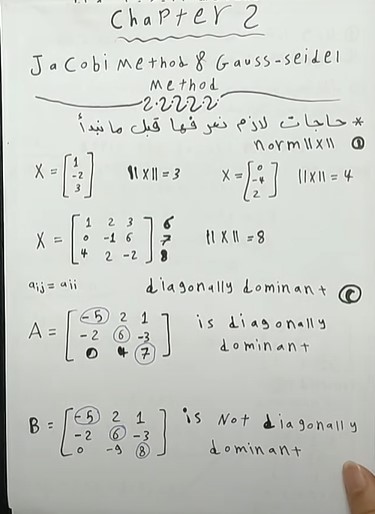 Chapter 2
Jacobi Method & Gauss-seidel
Method
* حاجات لازم نعرفها قبل مانبدأ
norm ||x|| ①
X = [1 -2 3] ||X|| = 3 X = [0 -4 2] ||X|| = 4
X = [1 2 3
0 -1 6
4 2 -2] 6 7 8 ||X|| = 8
aij = aii diagonally dominant ②
A = [-5 2 1
-2 6 -3
0 4 7] is diagonally dominant
B = [-5 2 1
-2 6 -3
0 -9 8] is Not diagonally dominant